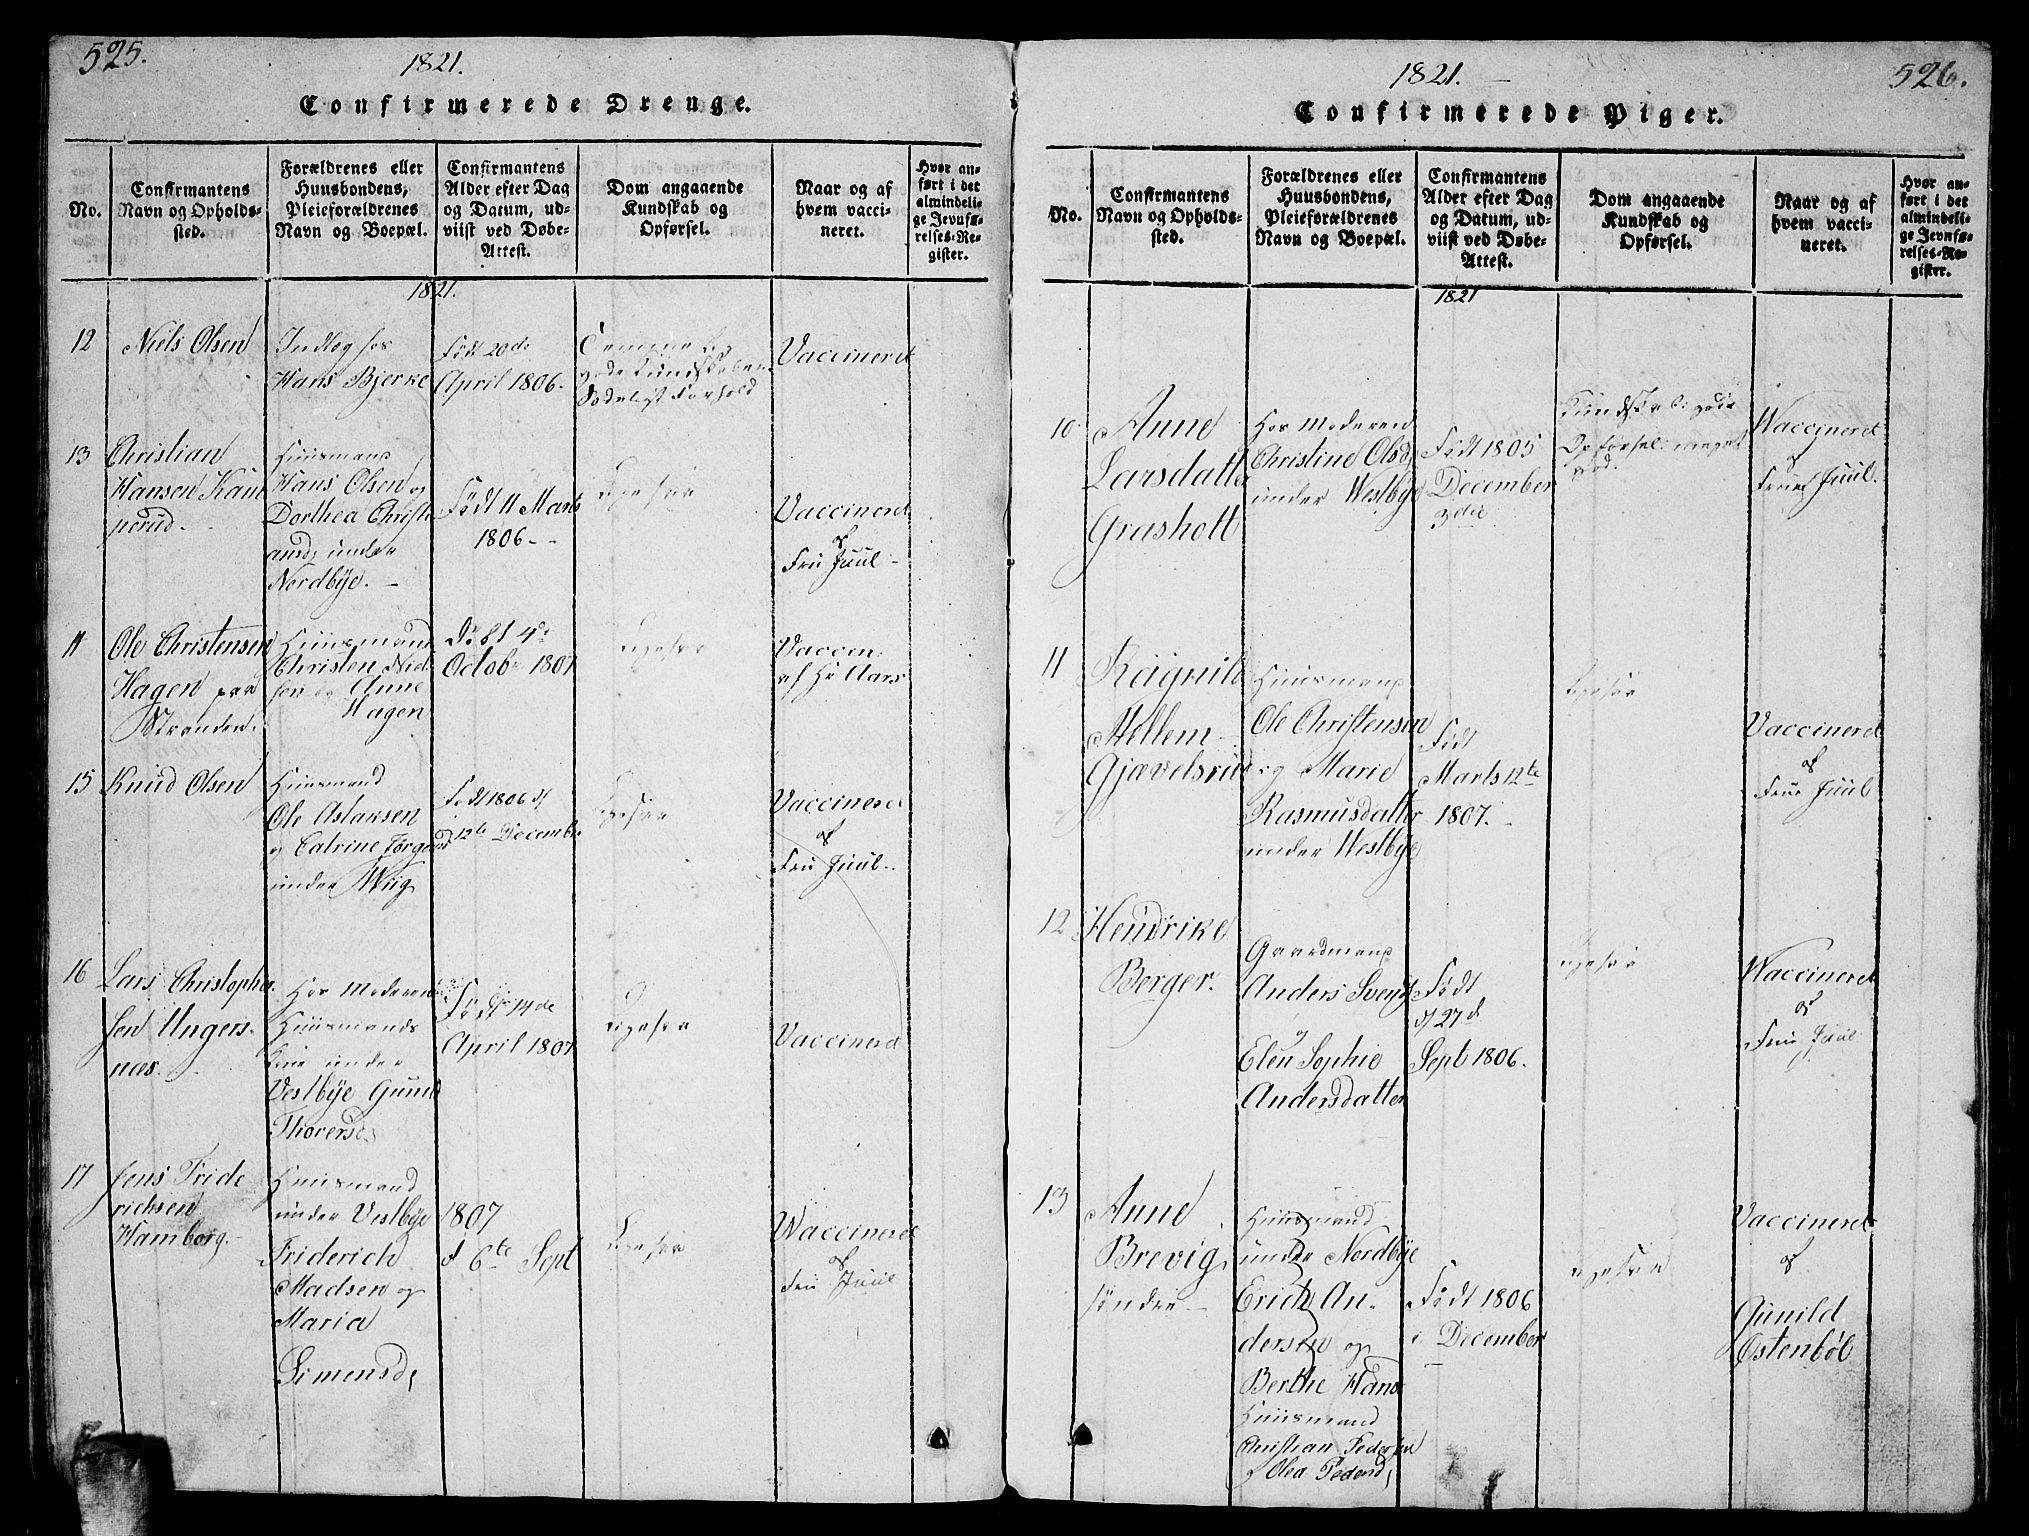 525.
1821.
Confirmerede Drenge.
No.
Confirmantens
Navn og Opholds-
sted.
Forældrenes eller
Huusbondens,
Pleieforældrenes
Navn og Boepæl.
Confirmantens
Alder efter Dag
og Datum, ud-
viist ved Døbe-
Attest.
Dom angaaende
Kundskab og
Opførsel.
Naar og af
hvem vacci-
neret.
Hvor an-
ført i det
almindeli-
ge Jevnfø-
relses-Re-
gister.
1821.
12
Niels Olsen
Indlog hos
Hans Bjerke
Født 20de
April 1806.
gode Kundskaber
Forhold
Vaccineret
13
Christian
Hansen Kam
perud.
Huusmand
Hans Olsen og
Dorthea Christi
ansd: under
Nordbÿe. -
Født 11 Marts
1806 - -
Ligesaa
Vaccineret
af
Fru Juul -
11
Ole Christensen
Hagen paa
Stranden.
Huusmand
Christen Niel
sen og Anne
Hagen
Døbt 4de
Octob 1807
Ligesaa
Vaccin:
af Hr Aars
15
Knud Olsen
Huusmand
Ole Aslaksen
og Catrine Torgersd
under Wiig
Født 1806 d
12te Decembr
Ligesaa
Vaccineret
af
Fru Juul -
16
Lars Christopher
sen Ungers-
næs.
Hos Moderen
Huusmands
Kone under
Vestbÿe Gunild
Thoresd.
Fød d 14de
April 1807
Ligesaa
Vaccineret
17
Jens Fride
richsen
Hamborg.
Huusmand
under Vestbÿe
Friderich
Madsen og
Maria
Simensd:
1807
d 6te Sept
Ligesaa
Waccineret
af
Fru Juul
1821.
526.
Confirmerede Piger.
No.
Confirmantens
Navn og Opholds-
sted.
Forældrenes eller
Huusbondens,
Pleieforældrenes
Navn og Boepæl.
Confirmantens
Alder efter Dag
og Datum, ud-
viist ved Døbe-
Attest.
Dom angaaende
Kundskab og
Opførsel.
Naar og af
hvem vacci-
neret.
Hvor an-
ført i det
almindeli-
ge Jevnfø-
relses-Re-
gister.
1821
10
Anne
Larsdatter
Grasholt
Hos Moderen
Christine Olsd
under Westbÿe
Født 1805
December
3die
Kundskab: gode
Opførsel: meget
god.
Waccineret
af
Frue Juul.
11
Reignild
Mellem
Gjævelsrud
Huusmand
Ole Christensen
og Marie
Rasmusdatter
under Westbÿe
Født
Marts 12te
1807. -
Ligesaa
Vaccineret
af
Frue Juul
12
Hendrike
Berger.
Gaardmand
Anders Svends
og
Elen Sophie
Andersdatter
Født
d 27d
Sept 1806.
Ligesaa
Waccineret
af
Fru Juul
13
Anne
Brevig
søndre -
Huusmand
under Nordbÿe
Erich An-
dersen og
Berthe Hans
Huusmand
Christian Pedersen
Olea Pedersd:
Født 1806
i December
Ligesaa
Vaccineret
af
Gunild
Østenbøl